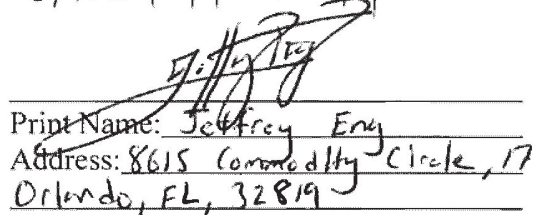 Print Name: Jeffrey Eng
Address: 8615 Commodity Circle, 17
Orlando, FL, 32819